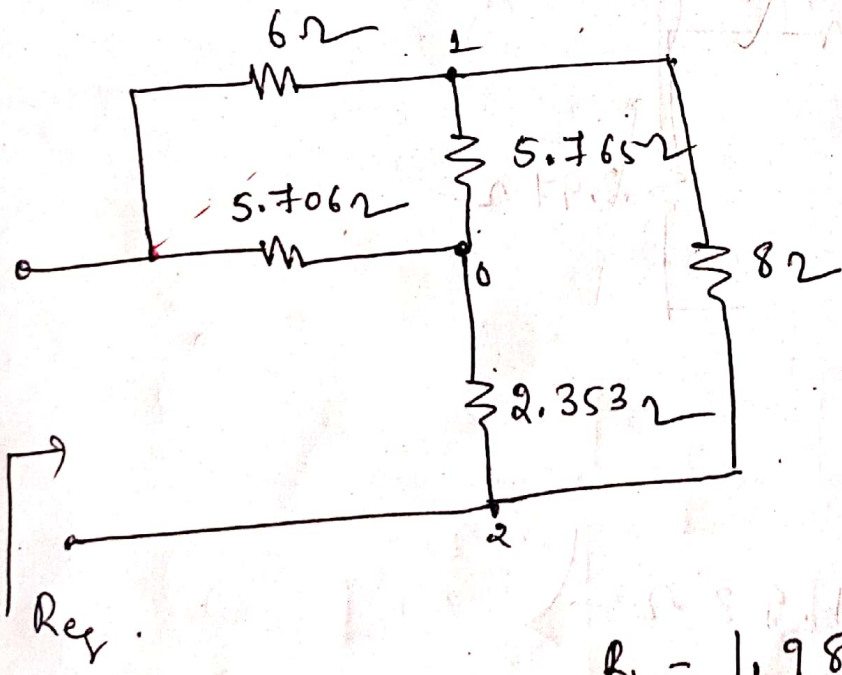 6Ω
1
5.765Ω
5.706Ω
0
8Ω
2.353Ω
2
Req.